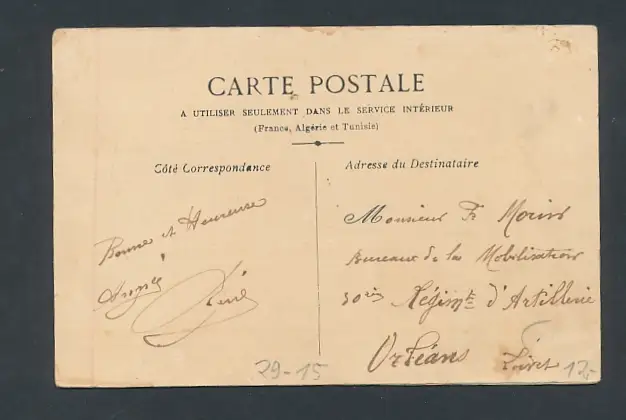 CARTE POSTALE
A UTILISER SEULEMENT DANS LE SERVICE INTÉRIEUR
(France, Algérie et Tunisie)
Côté Correspondance
Adresse du Destinataire
Bonne et Heureuse
Année
René
Monsieur Fr Morin
Bureaux de la Mobilisation
30ème Régimt d'Artillerie
Orléans
Loiret
29-15
12-